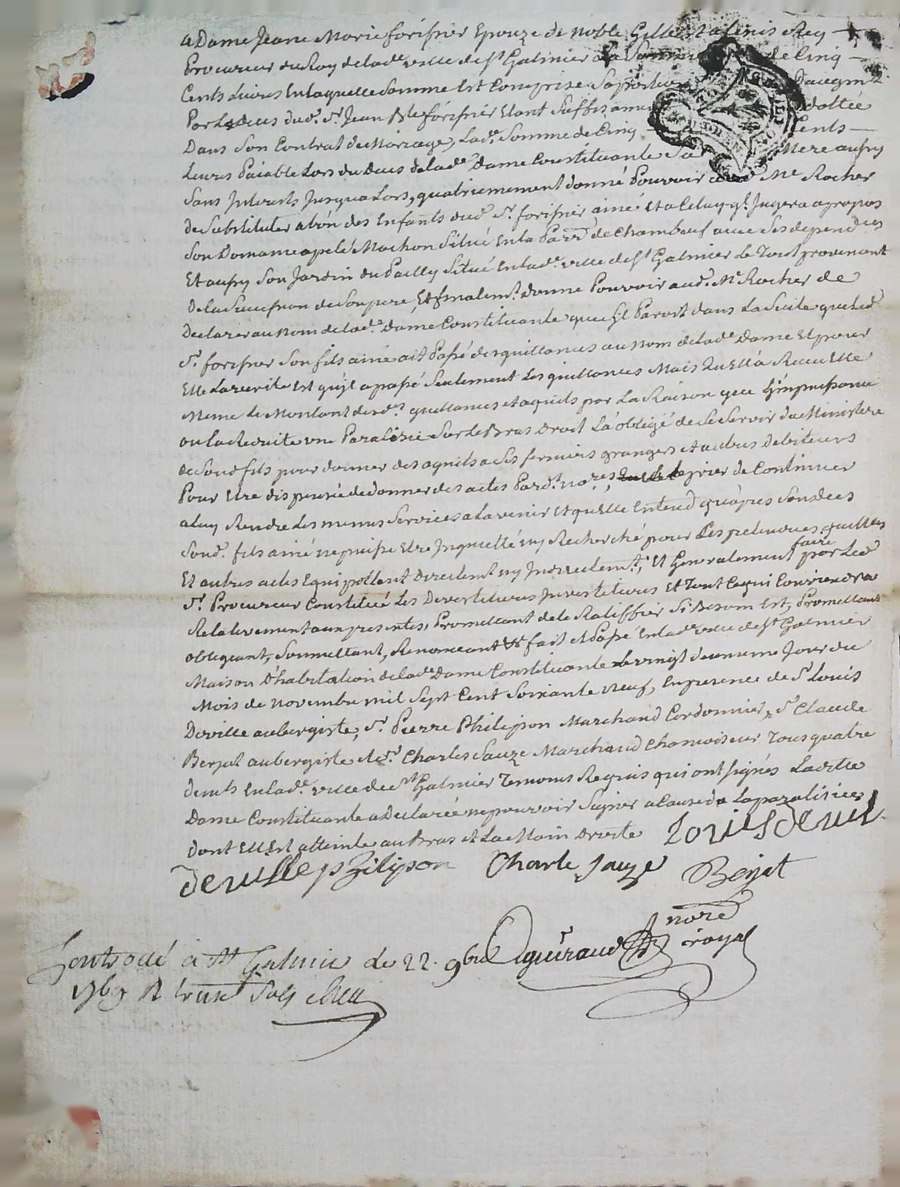 a Dame Jeane Marie forissier Epouze de noble Gilles Denis Rey
Procureur du Roy de lad.e ville de St Galmier La Somme de Cinq
Cents Livres En laquelle Somme Est Comprise Sa portion d'augm.
Par Le deces dud. Sr. Jean Bte forissier Etant Suffisament dottée
Dans Son Contrat de Mariage, Lad. Somme de Cinq Cents
Livres Païable Lors du Deces de lad.e Dame Constituante Sa Mere aussy
Sans Interests Jusqu'a Lors, quatriemement donné Pouvoir aud. Me Rocher
de Substituer a lún des Enfants dud. Sr. forissier ainé Et a Celuy ql. Jugera apropos
Son Domaine apelé Machon Situé En la Parr. de Chambeuf avec Ses dependces
Et aussy Son Jardin du Pailly Situé En lad.e ville de St Galmier Le Tout provenant
De la Succession de Son pere, Et finalemt. donne Pouvoir aud. Me. Rocher de
Declarer au Nom de lad.e Dame Constituante que Sil Paroit dans La Suite que led.
Sr. forissier Son fils ainé ait Passé des quittances au nom de lad.e Dame Et pour
Elle La verité Est qu'il a passé Seulement Les quittances Mais qu'Ell'a Recu Elle
Meme Le Montant desd. quittances et aquits par La Raison que L'impuissance
ou la Reduite une Paralizie Sur Le Bras Droit L'a obligé de Se Servir du Ministere
de Sond. fils pour donner des aquits a Ses fermiers grangers et autres debiteurs
Pour Etre dispensée de donner des actes Pardt. nores, prier de Continuer
a Luy Rendre Les memes Services a Lavenir Et qu'elle Entend qu'apres Son deces
Sond. fils ainé ne puisse Etre Inquietté ny Recherché pour Les pretendues quittces
Et autres actes Equipollent Directemt. ny Indirectemt., Et Generalement faire par Led.
Sr. Procureur Constitué Les Devestitures Investitures Et Tout Ce qui Conviendra
Relativement aux presentes, Promettant de le Ratiffier Si Besoin Est, Promettant
obligeant, Soumettant, Renonceant &c fait Et Passé En lad.e ville de St Galmier
Maison D'habitation de lad.e Dame Constituante Le vingt deuxieme Jour du
Mois de Novembre mil Sept Cent Soixante Neuf, En presence de Sr. Louis
Deville aubergiste, Sr. Pierre Philipon Marchand Cordonnier, Sr. Claude
Berjat aubergiste et Sr. Charles Sauze Marchand Chamoiseur Tous quatre
demts. En lad.e ville de St Galmier Temoins Requis qui ont Signés Ladite
Dame Constituante a Declarée ne pouvoir Signer a Cause de La paralisie
dont Elle Est atteinte au Bras et La Main Droite Louis devil
deville p philipon Charle Sauze Berjat
nore
Controllé à St Galmier Le 22. 9bre guiraud royal
1769 R treize Sols